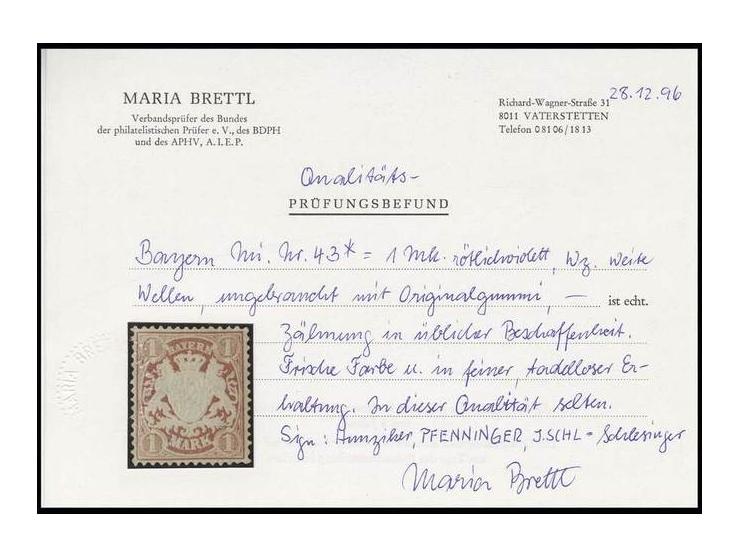 MARIA BRETTL
Verbandsprüfer des Bundes
der philatelistischen Prüfer e. V., des BDPH
und des APHV, A.I.E.P.
Richard-Wagner-Straße 31
8011 VATERSTETTEN
Telefon 0 81 06 / 18 13
28.12.96
Qualitäts-
PRÜFUNGSBEFUND
Bayern Mi. Nr. 43* = 1 Mk. rötlichviolett, Wz. weite
Wellen, ungebraucht mit Originalgummi, — ist echt.
Zähnung in üblicher Beschaffenheit.
Frische Farbe u. in feiner, tadelloser Er-
haltung. In dieser Qualität selten.
Sign: Hunziker, PFENNINGER, J.SCHL = Schlesinger
Maria Brettl
1 BAYERN 1
1 MARK 1
MARIA BRE